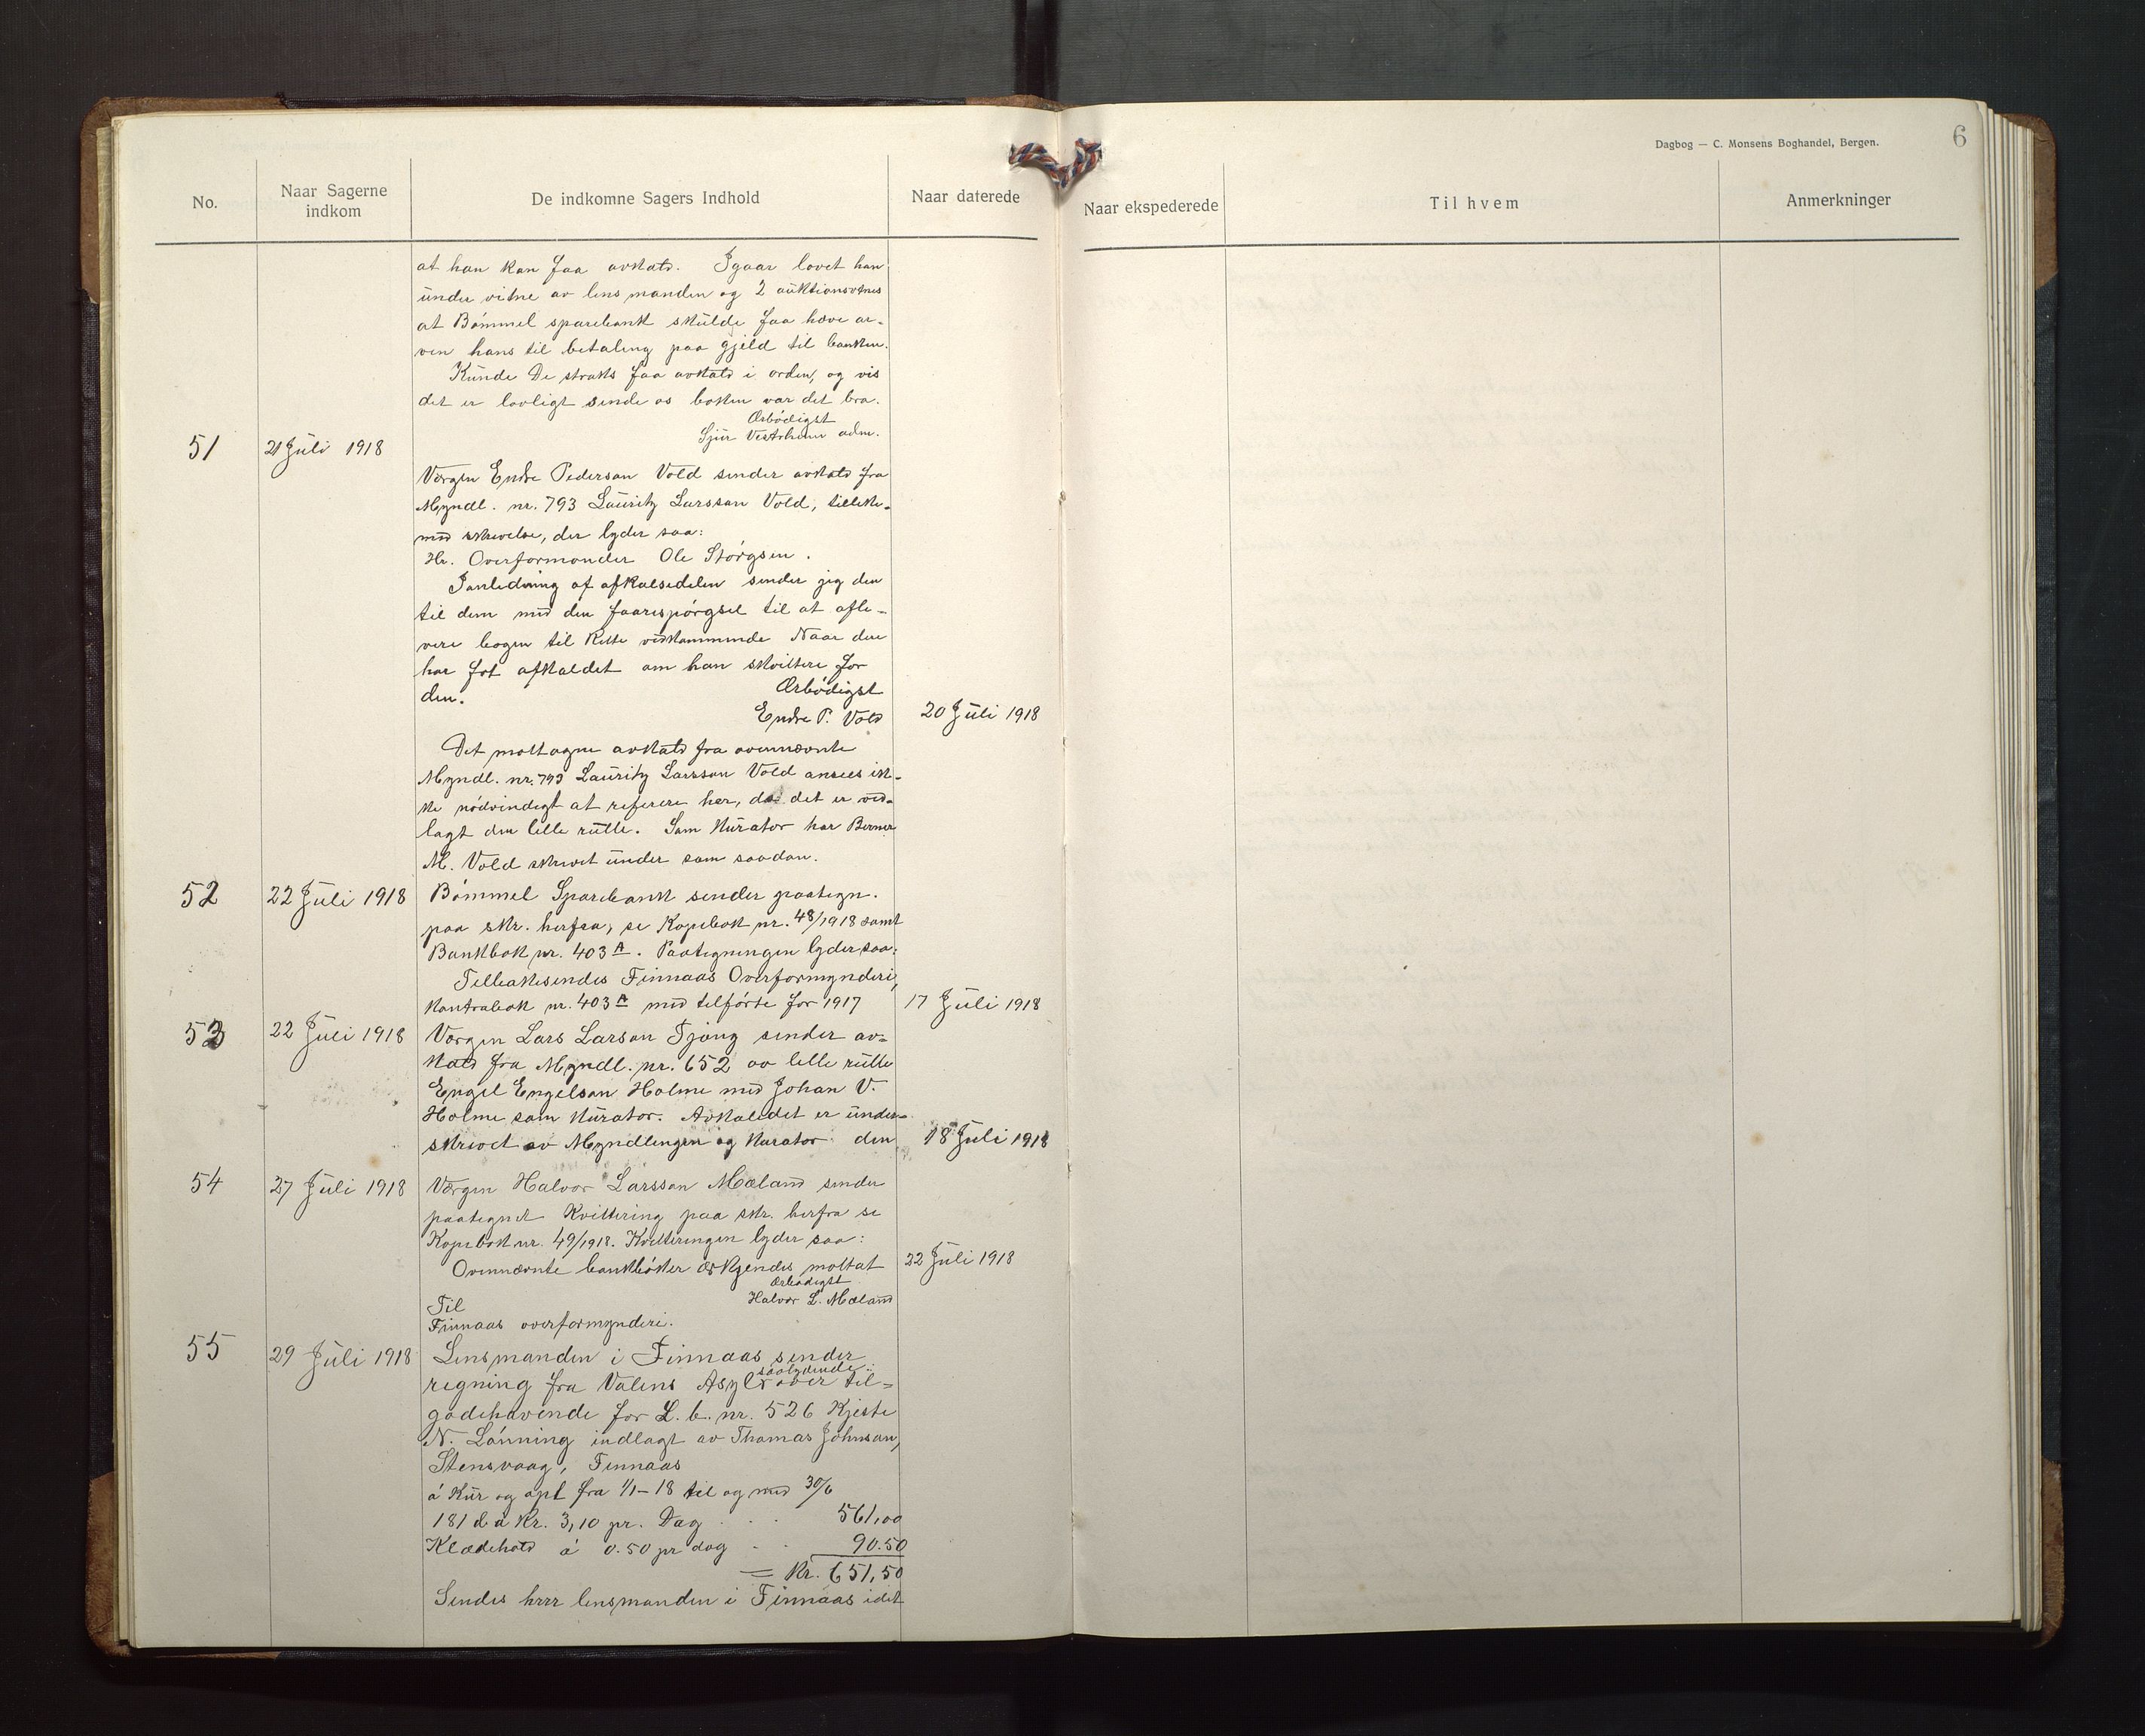 Dagbog — C. Monsens Boghandel, Bergen.
6
No.
Naar Sagerne indkom
De indkomne Sagers Indhold
Naar daterede
Naar ekspederede
Til hvem
Anmerkninger
at han kan faa avkald. Igaar lovet han
under vitne av lensmanden og 2 auktionsvitnes
at Bømmel sparebank skulde faa hæve ar-
ven hans til betaling paa gjeld til banken.
Kunde De straks faa avkald i orden, og vis
det er lovligt sende os boken var det bra.
Ærbødigst
Sjur Vestrheim adm.
51 21 Juli 1918
Vergen Endre Pederson Vold sender avkald fra
Myndl. nr. 793 Lauritz Larsson Vold, tilleke-
med skrivelse, der lyder saa:
Hr. Overformonder Ole Størgsen.
Ianledning af afkalsedelen sender jeg den
til dem med den faarespørgsel til at afle-
vere bogen til Rette vedkommende Naar den
har fot afkaldet om han skviltere for
den.
Ærbødigst
Endre P. Vold 20 Juli 1918
Det mottagne avkald fra ovennævnte
Myndl. nr. 793 Lauritz Larsson Vold ansees ik-
ke nødvindigt at referere her, da det er ved-
lagt den lille rulle. Som Kurator har Berner
M. Vold skrevet under som saadan.
52 22 Juli 1918 Bømmel Sparebank sender paategn.
paa skr. herfra, se Kopibok nr. 48/1918 samt
Bankbok nr. 403 A. Paategningen lyder saa:
Tilbakesendes Finnaas Overformynderi,
Kontrabok nr. 403 A med tilførte for 1917 17 Juli 1918
53 22 Juli 1918 Vergen Lars Larson Tjong sender av-
kald fra Myndl. nr. 652 av lille rulle
Engel Engelson Holme med Johan V.
Holme som Kurator. Avkaldet er under-
skrevet av Myndlingen og Kurator den 18 Juli 1918
54 27 Juli 1918 Vergen Halvor Larsson Mæland sender
paategnet Kvittering paa skr. herfra se
Kopibok nr. 49/1918. Kvitteringen lyder saa:
Ovennævnte bankbøker erkjendes mottat 22 Juli 1918
Ærbødigst
Halvor L. Mæland
Til
Finnaas overformynderi.
55 29 Juli 1918 Lensmanden i Finnaas sender
saalydende
regning fra Valens Asyl over til-
godehavende for L. b. nr. 526 Kjeste
N. Lønning indlagt av Thomas Johnson,
Stensvaag, Finnaas
á Kur og opl fra 1/1-18 til og med 30/6
181 d á Kr. 3,10 pr. Dag . . . 561,00
Klædehold á 0.50 pr dag . . 90.50
= Kr. 651,50
Sendes hrrr lensmanden i Finnaas idet